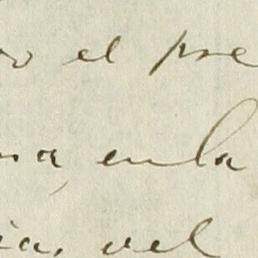 o el pre
na, en la
ias, del